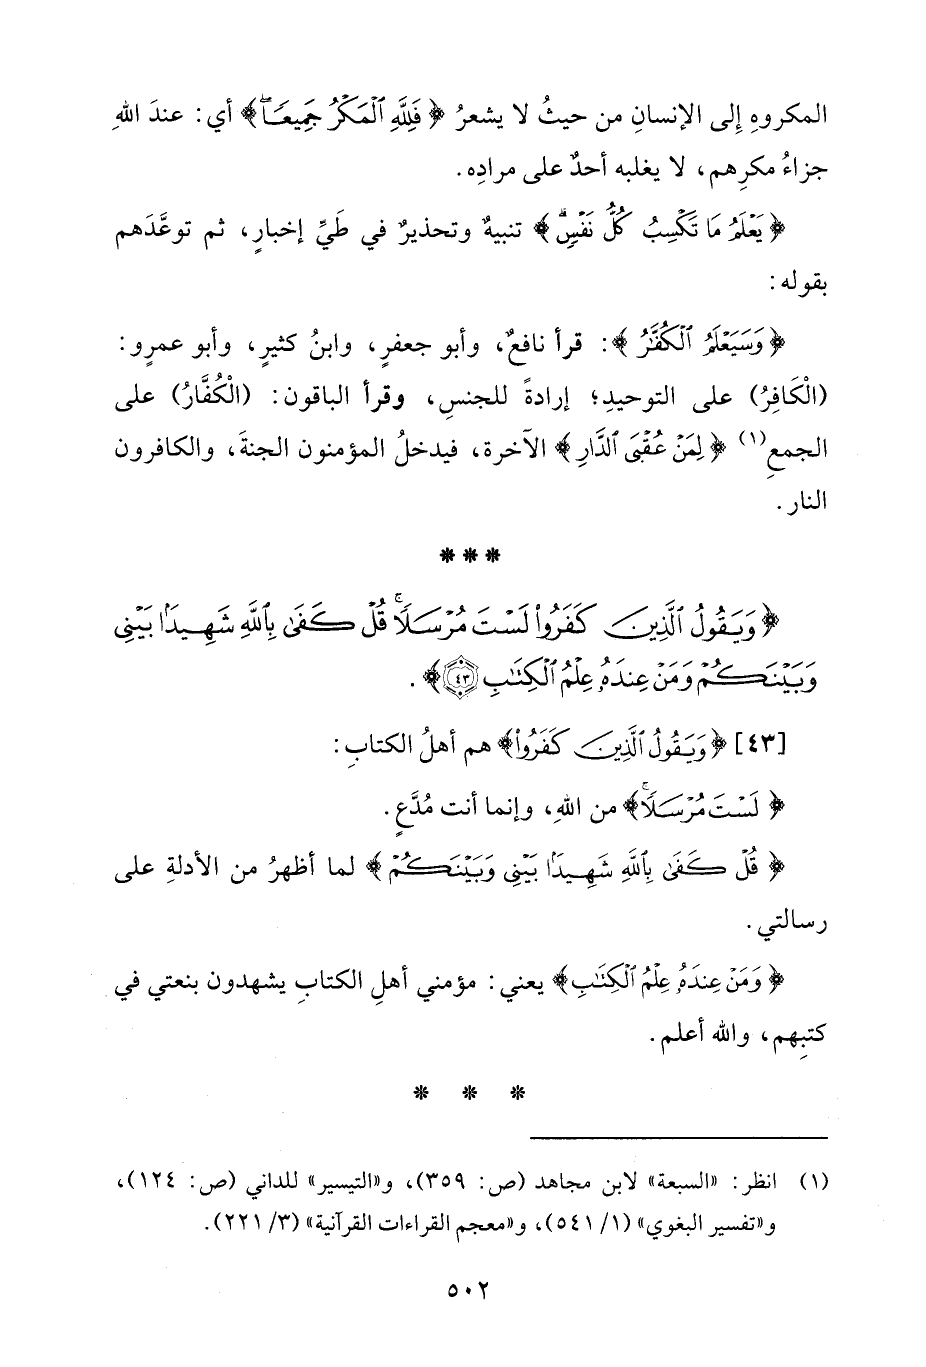 المكروهِ إلى الإنسانِ من حيثُ لا يشعرُ ﴿فَلِلَّهِ ٱلْمَكْرُ جَمِيعًاۖ﴾ أي: عندَ اللهِ
جزاءُ مكرِهم، لا يغلبه أحدٌ على مرادِه.
﴿يَعْلَمُ مَا تَكْسِبُ كُلُّ نَفْسٍۗ﴾ تنبيهٌ وتحذيرٌ في طَيِّ إخبارٍ، ثم توعَّدَهم
بقوله:
﴿وَسَيَعْلَمُ ٱلْكُفَّٰرُ﴾: قرأ نافعٌ، وأبو جعفرٍ، وابنُ كثيرٍ، وأبو عمرٍو:
(الْكَافِرُ) على التوحيدِ؛ إرادةً للجنسِ، وقرأ الباقون: (الْكُفَّارُ) على
الجمعِ(١) ﴿لِمَنْ عُقْبَى ٱلدَّارِ﴾ الآخرة، فيدخلُ المؤمنون الجنةَ، والكافرون
النار.
***
﴿وَيَقُولُ ٱلَّذِينَ كَفَرُوا۟ لَسْتَ مُرْسَلًاۚ قُلْ كَفَىٰ بِٱللَّهِ شَهِيدًۢا بَيْنِى
وَبَيْنَكُمْ وَمَنْ عِندَهُۥ عِلْمُ ٱلْكِتَٰبِ ٤٣﴾.
[٤٣] ﴿وَيَقُولُ ٱلَّذِينَ كَفَرُوا۟﴾ هم أهلُ الكتابِ:
﴿لَسْتَ مُرْسَلًاۚ﴾ من اللهِ، وإنما أنت مُدَّعٍ.
﴿قُلْ كَفَىٰ بِٱللَّهِ شَهِيدًۢا بَيْنِى وَبَيْنَكُمْ﴾ لما أظهرُ من الأدلةِ على
رسالتي.
﴿وَمَنْ عِندَهُۥ عِلْمُ ٱلْكِتَٰبِ﴾ يعني: مؤمني أهلِ الكتابِ يشهدون بنعتي في
كتبِهم، والله أعلم.
* * *
(١) انظر: «السبعة» لابن مجاهد (ص: ٣٥٩)، و«التيسير» للداني (ص: ١٢٤)،
و«تفسير البغوي» (١/ ٥٤١)، و«معجم القراءات القرآنية» (٣/ ٢٢١).
٥٠٢